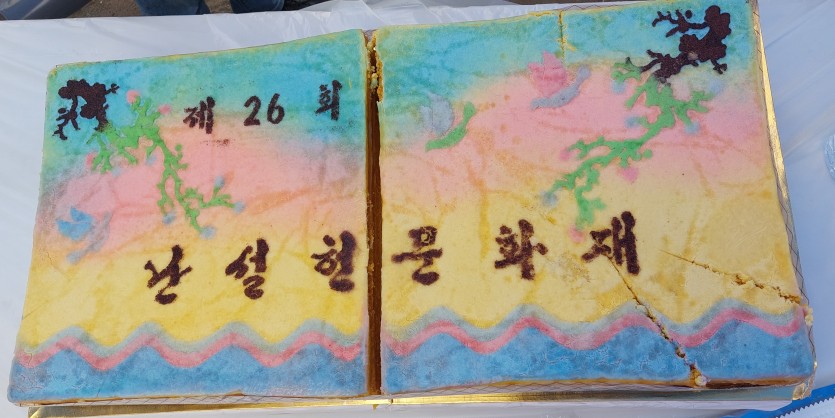 제 26 회
난설헌문화재